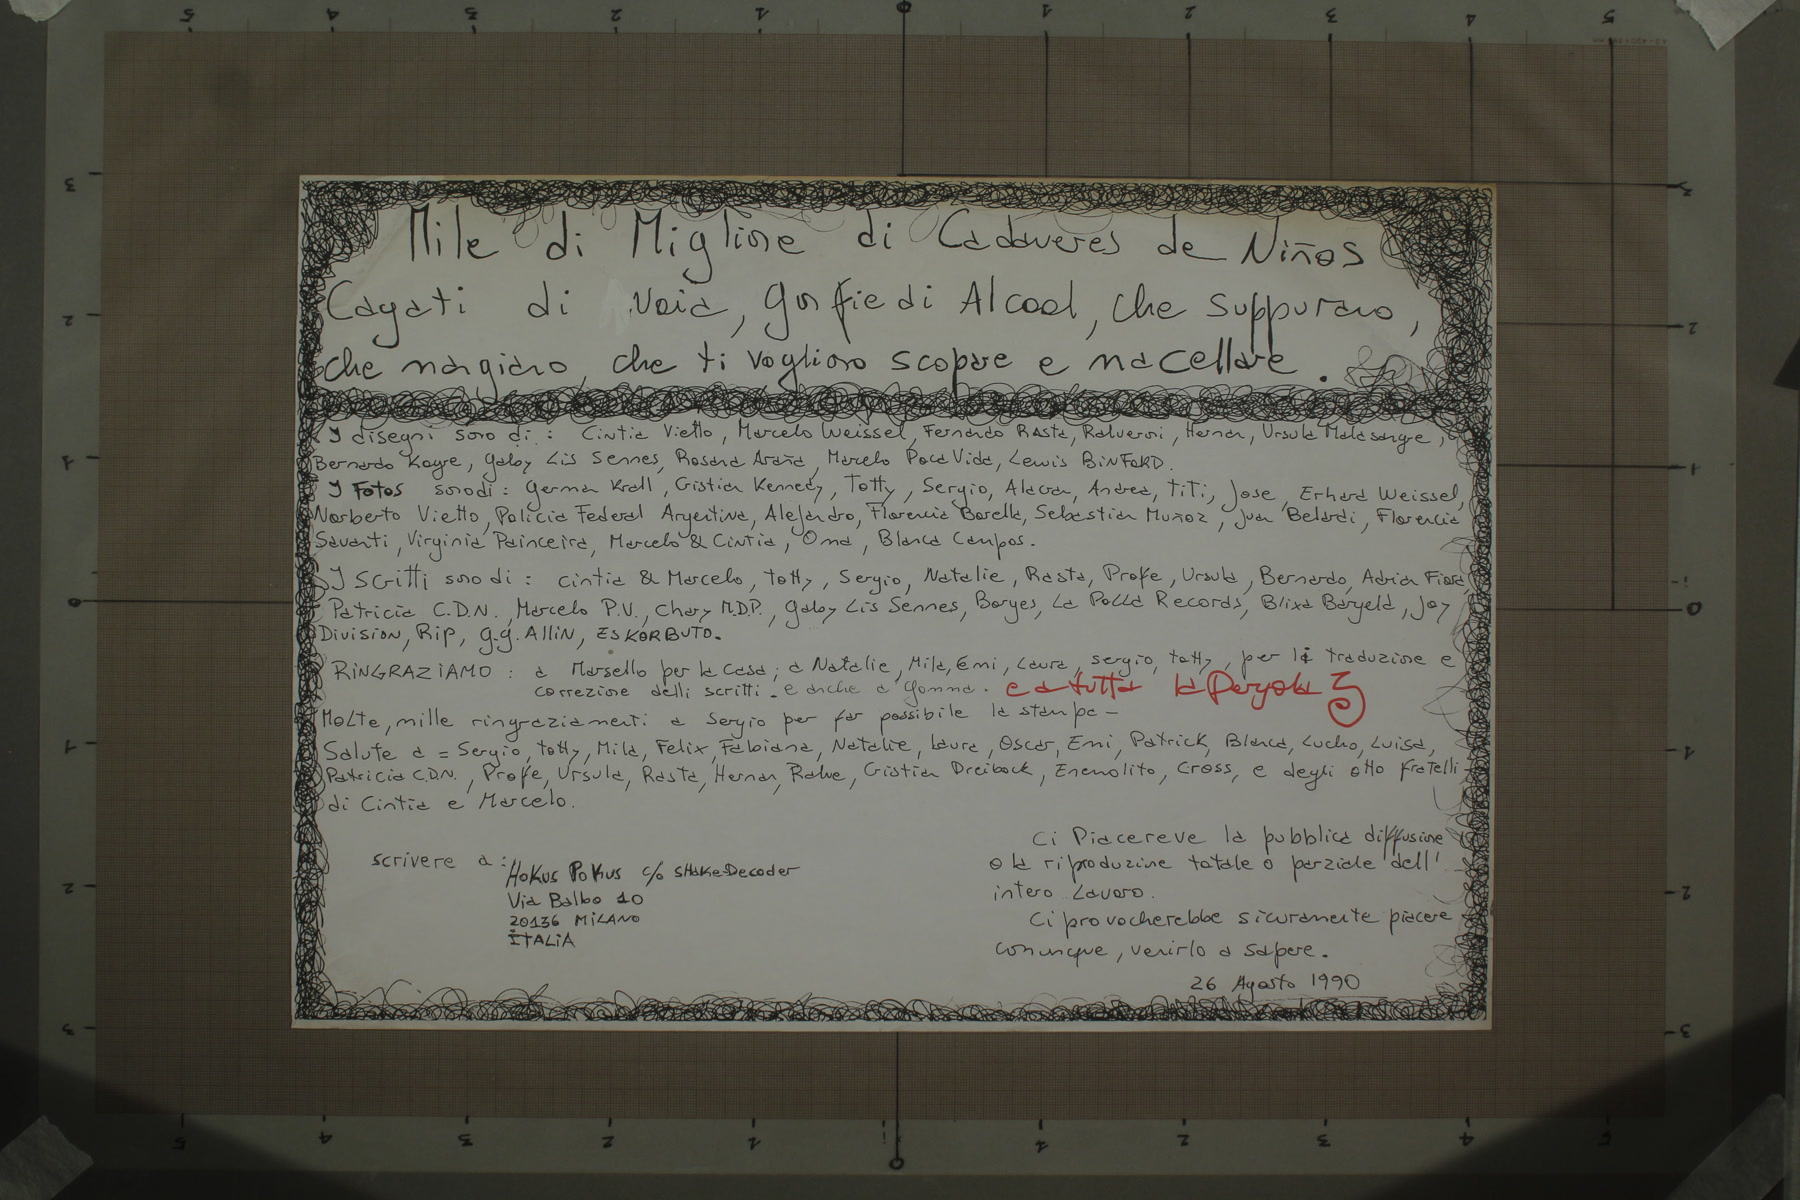 Mile di Miglione di Cadaveres de Niños
Cagati di Noia, gonfie di Alcool, che suppurano,
che mangiano, che ti vogliono scopare e macellare.
I disegni sono di: Cintia Vietto, Marcelo Weissel, Fernando Rasta, Ralveroni, Hernan, Ursula Malasangre,
Bernardo Kayre, Gaby Lis Sennes, Rosana Araña, Marcelo Poca Vida, Lewis BiNFoRD.
I Fotos sono di: German Krall, Cristian Kennedy, Totty, Sergio, Alacran, Andrea, TiTi, Jose, Erhard Weissel,
Norberto Vietto, Policia Federal Argentina, Alejandro, Florencia Borella, Sebastian Muñoz, Juan Belardi, Florencia
Savanti, Virginia Painceira, Marcelo & Cintia, Oma, Blanca Campos.
I scritti sono di: Cintia & Marcelo, totty, Sergio, Natalie, Rasta, Profe, Ursula, Bernardo, Adrian Fiora,
Patricia C.D.N., Marcelo P.V., Chary M.D.P., Gaby Lis Sennes, Borges, La Polla Records, Blixa Bargeld, Joy
Division, Rip, g.g. Allin, ESKORBUTO.
RiNGRAZIAMO: a Marsello per la casa; a Natalie, Mila, Emi, Laura, sergio, totty, per la traduzione e
correzione delli scritti. e anche a Gomma. e a tutta la Pergola
Molte, mille ringraziamenti a Sergio per far possibile la stampa -
Salute a = Sergio, totty, Mila, Felix, Fabiana, Natalie, Laura, Oscar, Emi, Patrick, Blanca, Lucho, Luisa,
Patricia C.D.N., Profe, Ursula, Rasta, Hernan, Ralve, Cristian Dreibock, Enenolito, Cross, e degli otto fratelli
di Cintia e Marcelo.
scrivere a: Hokus Pokus c/o SHaKe-Decoder
Via Balbo 10
20136 MiLANO
ITALiA
Ci Piacereve la pubblica diffusione
o la riproduzine totale o parziale dell'
intero Lavoro.
Ci provocherebbe sicuramente piacere
comunque, venirlo a sapere.
26 Agosto 1990
5 4 3 2 1 0 1 2 3 4 5
3 2 1 0 1 2 3
3 2 1 0 1 2 3
5 4 3 2 1 0 1 2 3 4 5